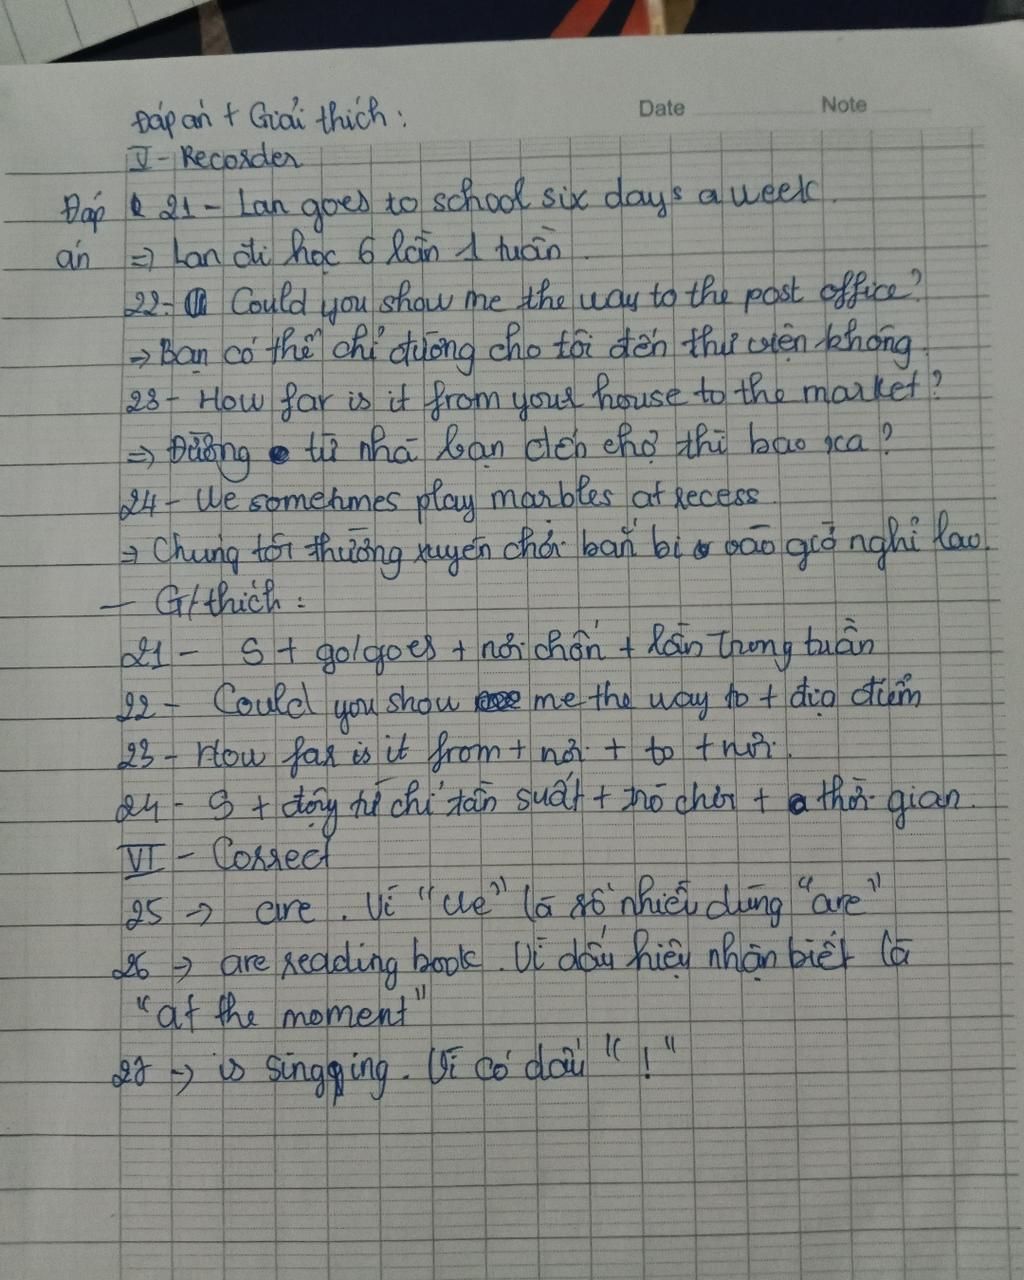 Date Note
Đáp án + Giải thích:
V - Recorder
Đáp 21 - Lan goes to school six days a week.
án => Lan đi học 6 lần 1 tuần.
22- Could you show me the way to the post office?
=> Bạn có thể chỉ đường cho tôi đến thư viện không.
23 - How far is it from your house to the market?
=> Đường từ nhà bạn đến chợ thì bao xa?
24 - We sometimes play marbles at recess
=> Chúng tôi thường xuyên chơi bắn bi vào giờ nghỉ lao.
- G/thích:
21 - S + go/goes + nơi chốn + lần trong tuần
22 - Could you show me the way to + địa điểm
23 - How far is it from + nơi + to + nơi.
24 - S + động từ chỉ tần suất + trò chơi + thời gian.
VI - Correct
25 -> are. Vì "We" là số nhiều dùng "are"
26 -> are reading book. Vì dấu hiệu nhận biết là
"at the moment"
27 -> is singging. Vì có dấu "!"